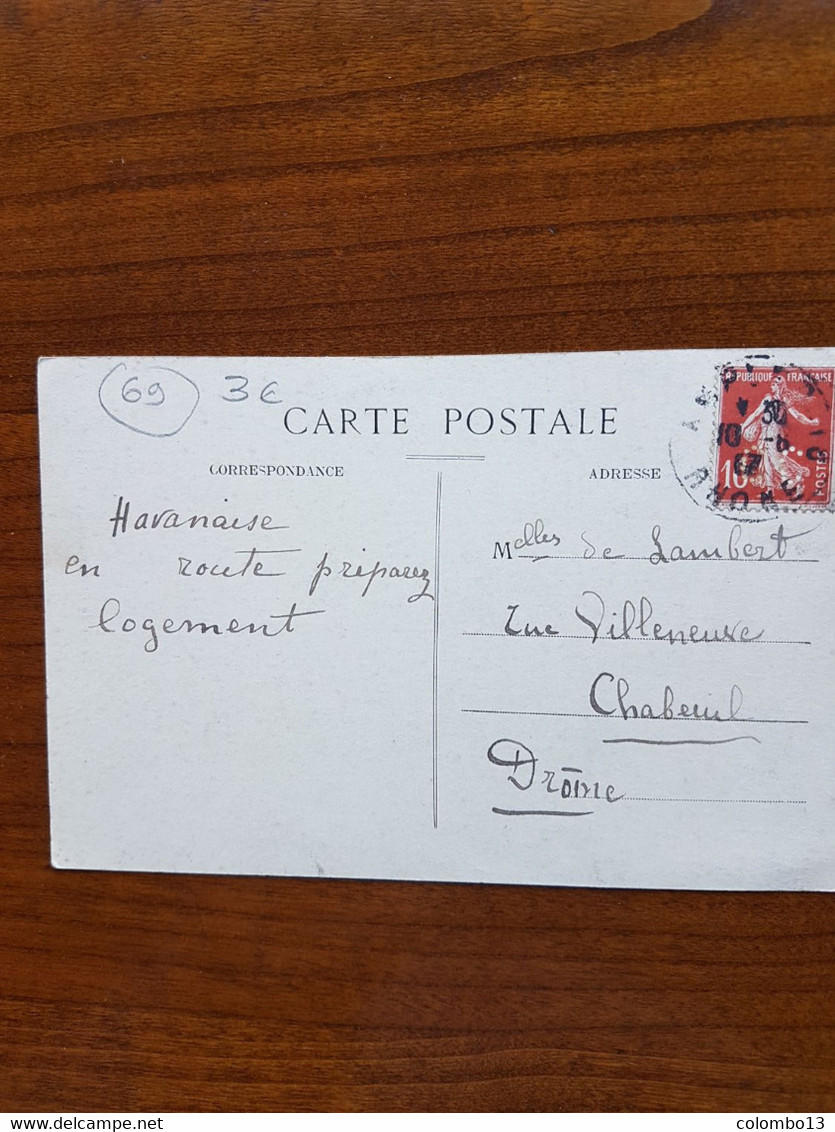 69 3€
CARTE POSTALE
CORRESPONDANCE
ADRESSE
REPUBLIQUE FRANÇAISE
10
POSTES
Havanaise
en route préparez
logement
Melles de Lambert
rue Villeneuve
Chabeuil
Drôme
www.delcampe.net
colombo13